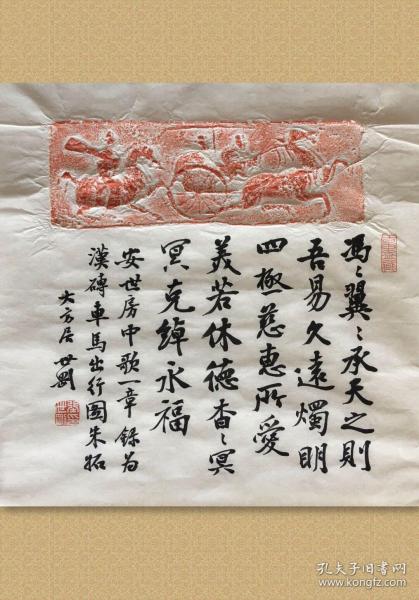 馮〻翼〻承天之則
吾易久遠燭明
四極慈惠所愛
美若休德杳〻冥
冥克綽永福
安世房中歌一章 錄為
漢磚車馬出行圖朱拓
大方居 世劉
孔夫子旧书网